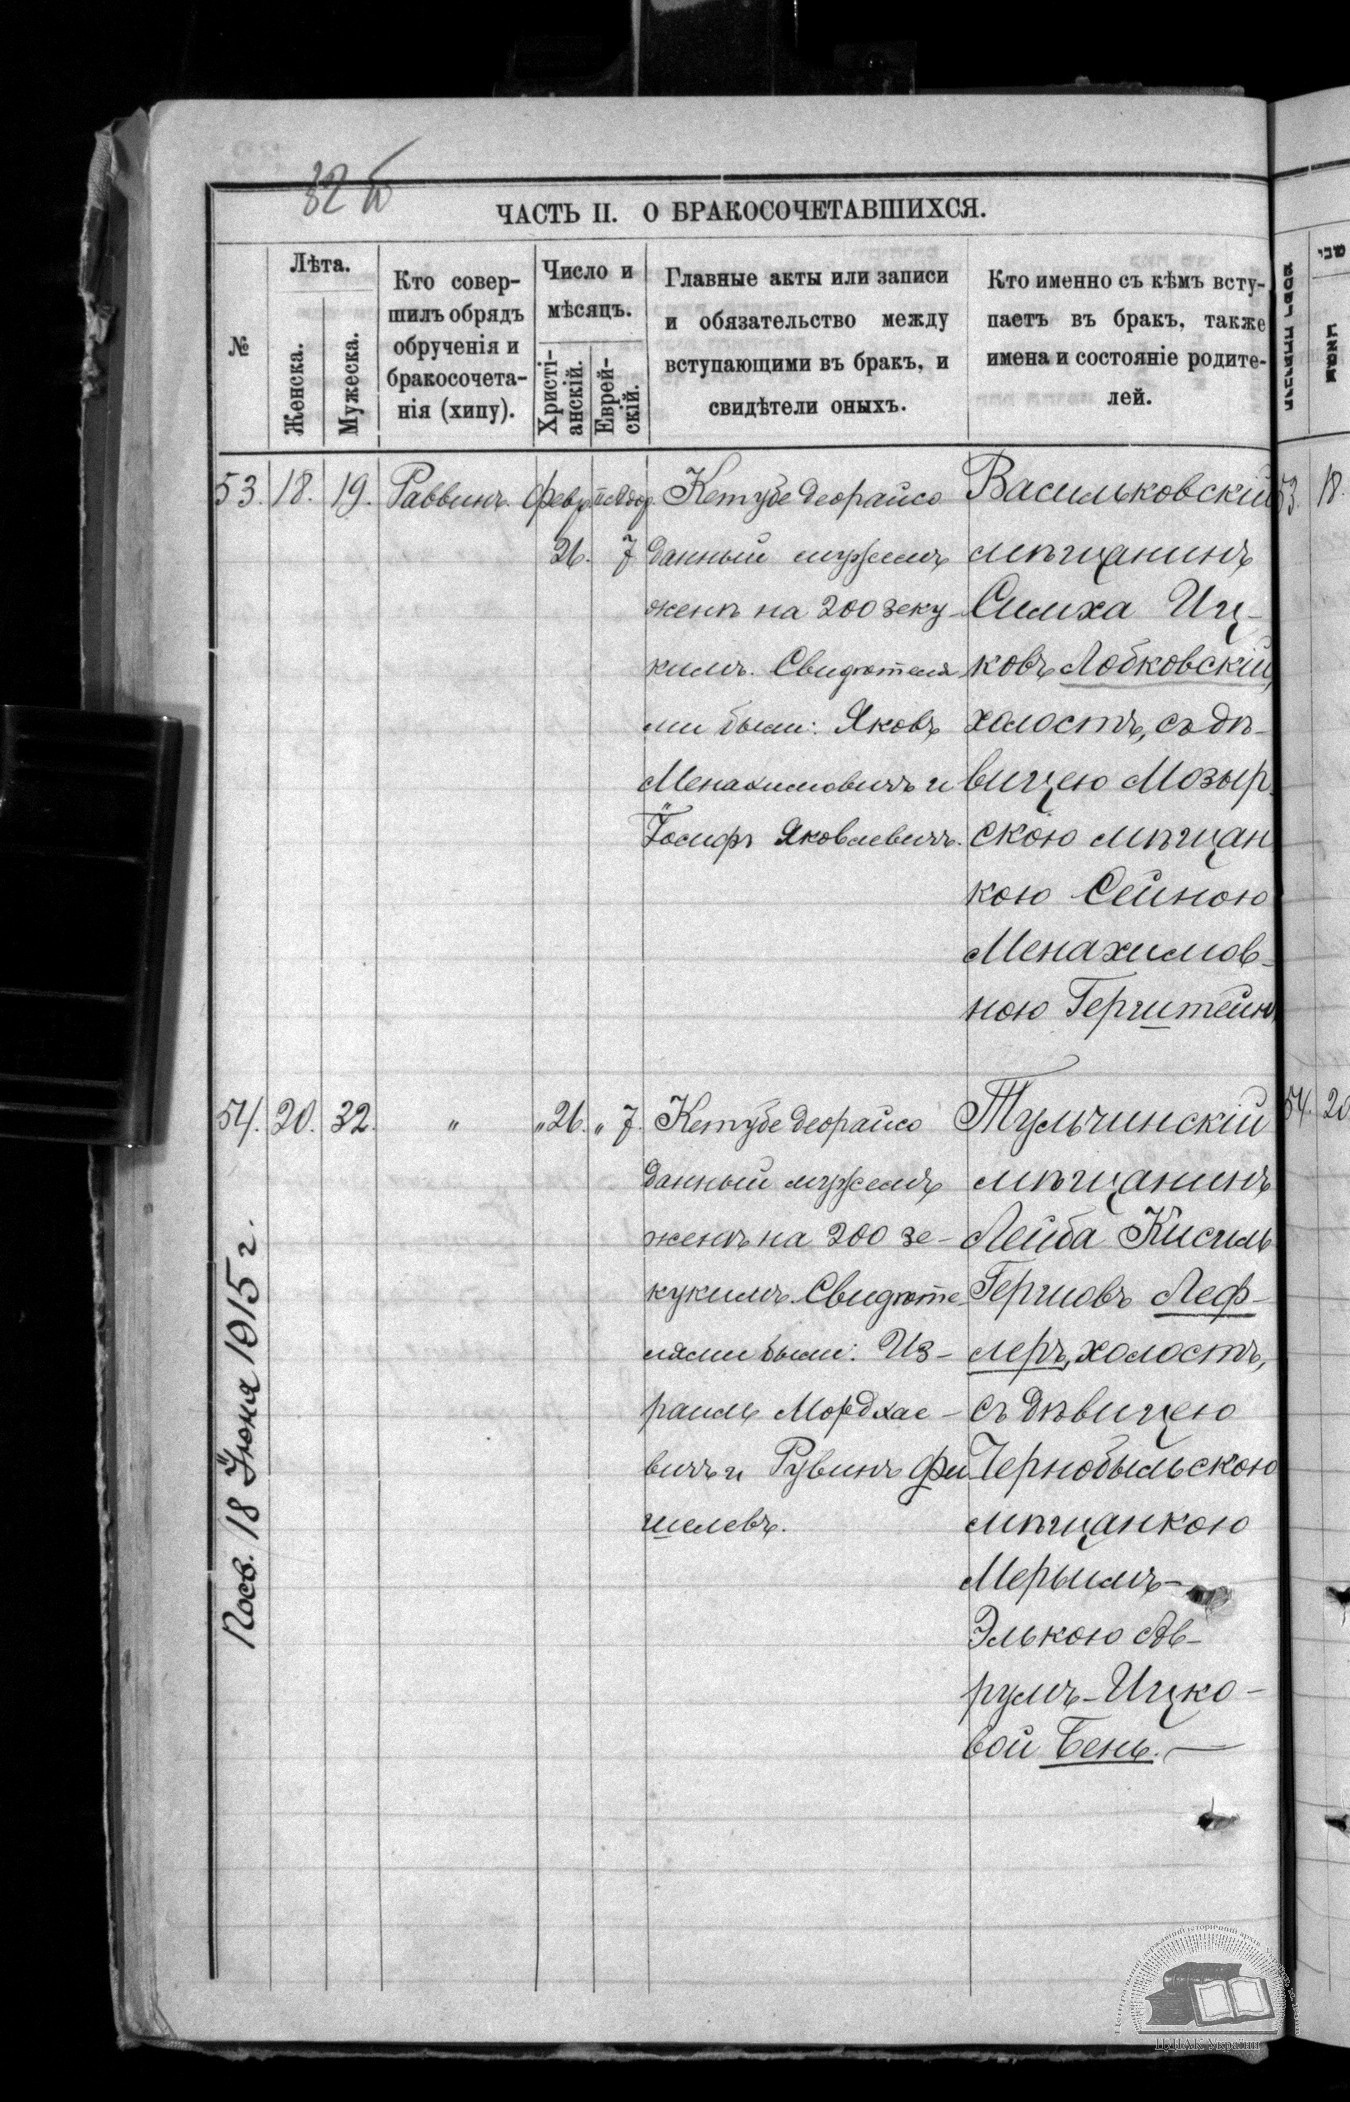 ЧАСТЬ II. О БРАКОСОЧЕТАВШИХСЯ.
№
Лѣта.
Женска.
Мужеска.
Кто совер-
шилъ обрядъ
обрученія и
бракосочета-
нія (хипу).
Число и
мѣсяцъ.
Христі-
анскій.
Еврей-
скій.
Главные акты или записи
и обязательство между
вступающими въ бракъ, и
свидѣтели оныхъ.
Кто именно съ кѣмъ всту-
паетъ въ бракъ, также
имена и состояніе родите-
лей.
53. 18. 19. Раввинъ. Февр. 26. 7
Кетубе деорайсо
данный мужемъ
женѣ на 200 зеку-
кимъ. Свидѣтеля
ми были: Яковъ
Менахимовичъ и
Іосифъ Яковлевичъ.
Васильковскій
мѣщанинъ
Симха Иц-
ковъ Лобковскій,
холостъ, съ дѣ-
вицею Мозыр
скою мѣщан
кою Сейною
Менахимов-
ною Герштейнъ
54. 20. 32. " " 26. " 7.
Кетубе деорайсо
данный мужемъ
женѣ на 200 зе-
кукимъ. Свидѣте-
лями были: Из-
раиль Мордхае-
вичъ и Рувинъ Фи
шелевъ.
Тульчинскій
мѣщанинъ
Лейба Кисиль
Гершовъ Леф-
леръ, холостъ,
съ дѣвицею
Чернобыльскою
мѣщанкою
Мерымъ-
Элькою Аб-
румъ-Ицко-
вой Бень. —
Посв. 18 Іюня 1915 г.
53. 18.
54. 20
ЦДІАК України